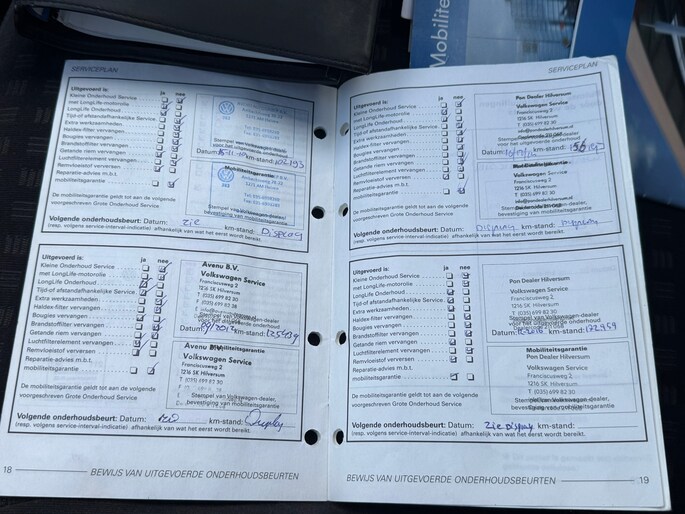 Mobilite
SERVICEPLAN
Uitgevoerd is: ja nee
Kleine Onderhoud Service
met LongLife-motorolie
LongLife Onderhoud
Tijd-of afstandafhankelijke Service
Extra werkzaamheden:
Haldex-filter vervangen
Bougies vervangen
Brandstoffilter vervangen
Getande riem vervangen
Luchtfilterelement vervangen
Remvloeistof verversen
Reparatie-advies m.b.t.
mobiliteitsgarantie
Stempel van Volkswagen-dealer
Datum: km-stand:
Mobiliteitsgarantie
Stempel van Volkswagen-dealer,
bevestiging van mobiliteitsgarantie
De mobiliteitsgarantie geldt tot aan de volgende
voorgeschreven Grote Onderhoud Service
Volgende onderhoudsbeurt: Datum: zie km-stand: Display
(resp. volgens service-interval-indicatie) afhankelijk van wat het eerst wordt bereikt.
Uitgevoerd is: ja nee
Kleine Onderhoud Service
met LongLife-motorolie
LongLife Onderhoud
Tijd-of afstandafhankelijke Service
Extra werkzaamheden:
Haldex-filter vervangen
Bougies vervangen
Brandstoffilter vervangen
Getande riem vervangen
Luchtfilterelement vervangen
Remvloeistof verversen
Reparatie-advies m.b.t.
mobiliteitsgarantie
Avenu B.V.
Volkswagen Service
Franciscusweg 2
1216 SK Hilversum
T (035) 699 82 30
Datum: km-stand:
Mobiliteitsgarantie
Avenu B.V.
Volkswagen Service
Franciscusweg 2
1216 SK Hilversum
T (035) 699 82 30
Stempel van Volkswagen-dealer,
bevestiging van mobiliteitsgarantie
De mobiliteitsgarantie geldt tot aan de volgende
voorgeschreven Grote Onderhoud Service
Volgende onderhoudsbeurt: Datum: km-stand: Display
(resp. volgens service-interval-indicatie) afhankelijk van wat het eerst wordt bereikt.
18 BEWIJS VAN UITGEVOERDE ONDERHOUDSBEURTEN
SERVICEPLAN
Uitgevoerd is: ja nee
Kleine Onderhoud Service
met LongLife-motorolie
LongLife Onderhoud
Tijd-of afstandafhankelijke Service
Extra werkzaamheden:
Haldex-filter vervangen
Bougies vervangen
Brandstoffilter vervangen
Getande riem vervangen
Luchtfilterelement vervangen
Remvloeistof verversen
Reparatie-advies m.b.t.
mobiliteitsgarantie
Pon Dealer Hilversum
Volkswagen Service
Franciscusweg 2
1216 SK Hilversum
T (035) 699 82 30
Datum: km-stand:
Volkswagen Service
Franciscusweg 2
1216 SK Hilversum
T (035) 699 82 30
bevestiging van mobiliteitsgarantie
De mobiliteitsgarantie geldt tot aan de volgende
voorgeschreven Grote Onderhoud Service
Volgende onderhoudsbeurt: Datum: Display km-stand:
(resp. volgens service-interval-indicatie) afhankelijk van wat het eerst wordt bereikt.
Uitgevoerd is: ja nee
Kleine Onderhoud Service
met LongLife-motorolie
LongLife Onderhoud
Tijd-of afstandafhankelijke Service
Extra werkzaamheden:
Haldex-filter vervangen
Bougies vervangen
Brandstoffilter vervangen
Getande riem vervangen
Luchtfilterelement vervangen
Remvloeistof verversen
Reparatie-advies m.b.t.
mobiliteitsgarantie
Pon Dealer Hilversum
Volkswagen Service
Franciscusweg 2
1216 SK Hilversum
T (035) 699 82 30
Stempel van Volkswagen-dealer
voor het uitgevoerde onderhoud
Datum: km-stand: 172459
Mobiliteitsgarantie
Pon Dealer Hilversum
Volkswagen Service
Franciscusweg 2
1216 SK Hilversum
T (035) 699 82 30
Stempel van Volkswagen-dealer,
bevestiging van mobiliteitsgarantie
De mobiliteitsgarantie geldt tot aan de volgende
voorgeschreven Grote Onderhoud Service
Volgende onderhoudsbeurt: Datum: Zie Display km-stand:
(resp. volgens service-interval-indicatie) afhankelijk van wat het eerst wordt bereikt.
BEWIJS VAN UITGEVOERDE ONDERHOUDSBEURTEN 19